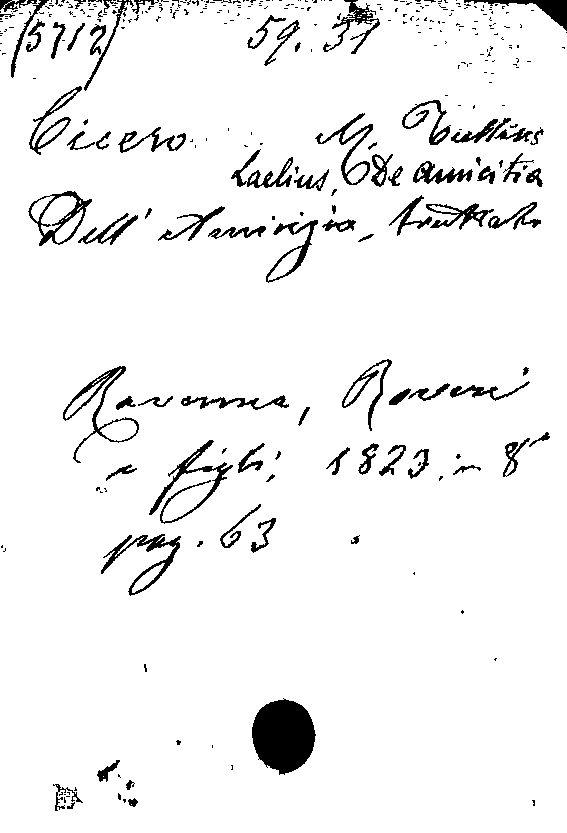 (5712) 59. 31
Cicero M. Tullius
Laelius, De amicitia
Dell' Amicizia, trattato
Ravenna, Roveri
e figli, 1823, in 8°
pag. 63